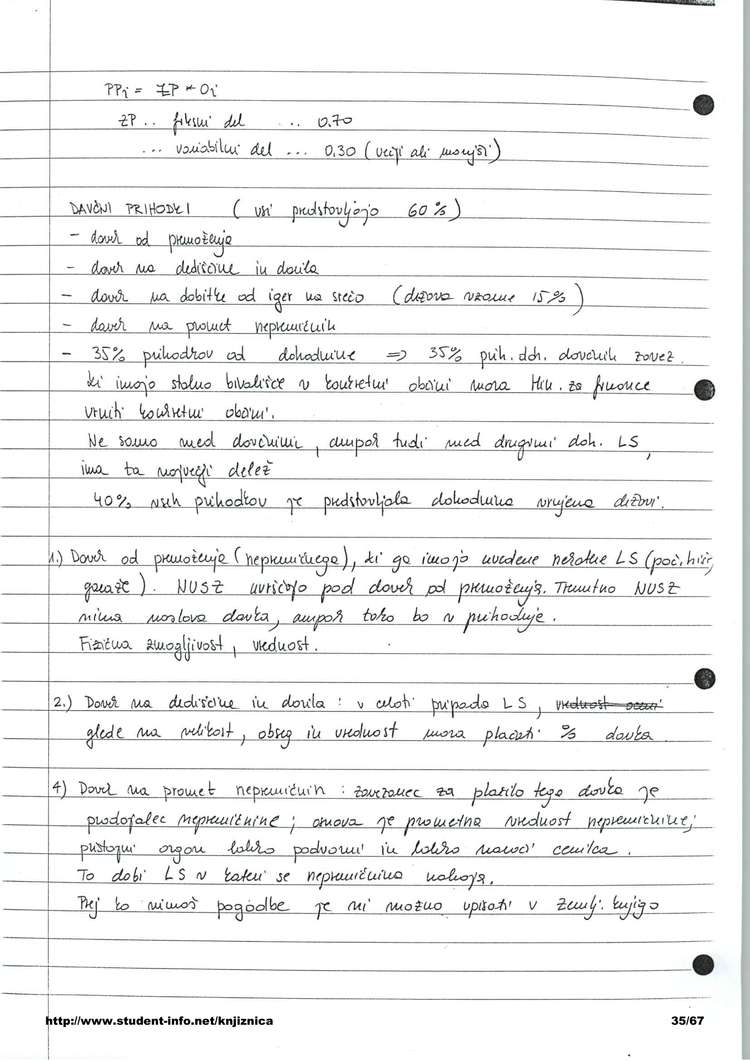 PPi = ZP * Oi
ZP .. fiksni del ... 0.70
... variabilni del ... 0,30 (večji ali manjši)
DAVČNI PRIHODKI ( vsi predstavljajo 60%)
- davek od premoženja
- davek na dediščine in darila
- davek na dobitke od iger na srečo (država vzame 15%)
- davek na promet nepremičnin
- 35% prihodkov od dohodnine => 35% prih. doh. davčnih zavez.
ki imajo stalno bivališče v konkretni občini mora Min. za finance
vrniti konkretni občini.
Ne samo med davčnimi, ampak tudi med drugimi doh. LS,
ima ta največji delež
40% vseh prihodkov je predstavljala dohodnina vrnjena državi.
1.) Davek od premoženja (nepremičnega), ki ga imajo uvedene nekatere LS (poč. hiše,
garaže). NUSZ uvrščajo pod davek od premoženja. Trenutno NUSZ
nima naslova davka, ampak tako bo v prihodnje.
Fizična zmogljivost, vrednost.
2.) Davek na dediščine in darila : v celoti pripada LS,
glede na velikost, obseg in vrednost mora plačati % davka
4) Davek na promet nepremičnin : zavezanec za plačilo tega davka je
prodajalec nepremičnine ; osnova je prometna vrednost nepremičnine;
pristojni organ lahko podvomi in lahko naroči cenilca.
To dobi LS v kateri se nepremičnina nahaja.
Prej ko nimaš pogodbe je ni možno vpisati v zemlj. knjigo
http://www.student-info.net/knjiznica
35/67